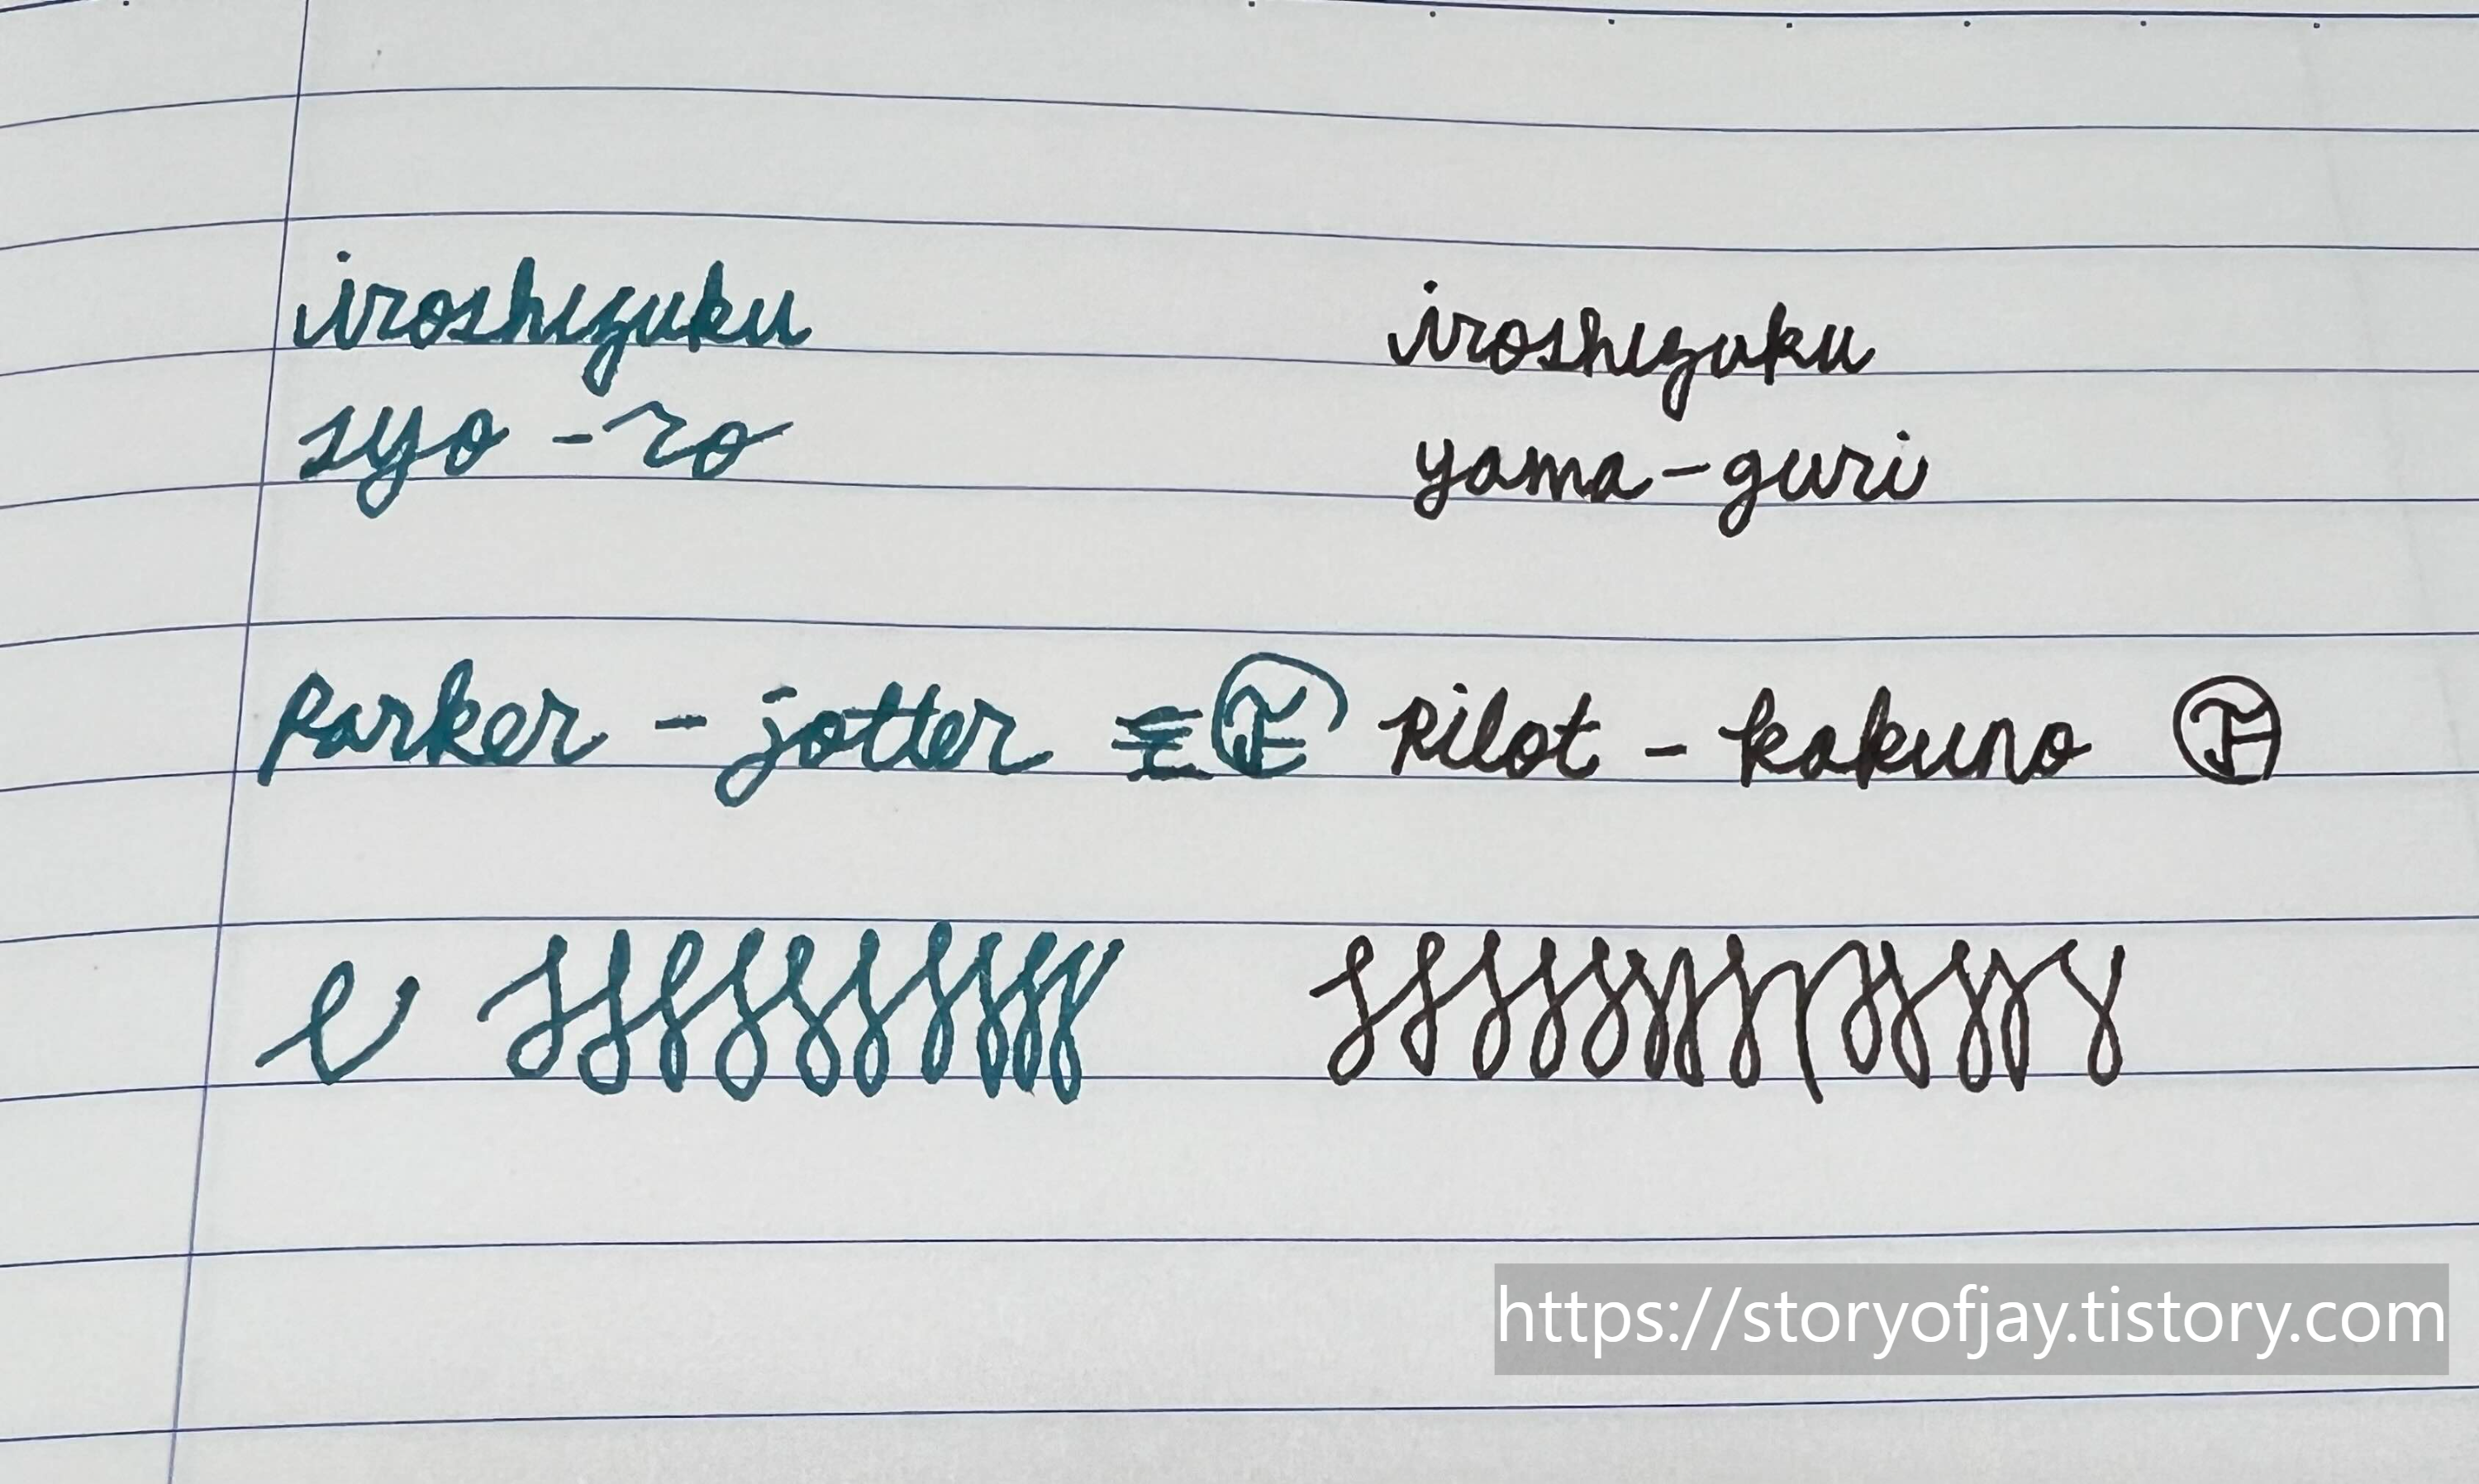 iroshizuku iroshizuku
syo-ro yama-guri
Parker - jotter F Pilot - kakuno F
https://storyofjay.tistory.com